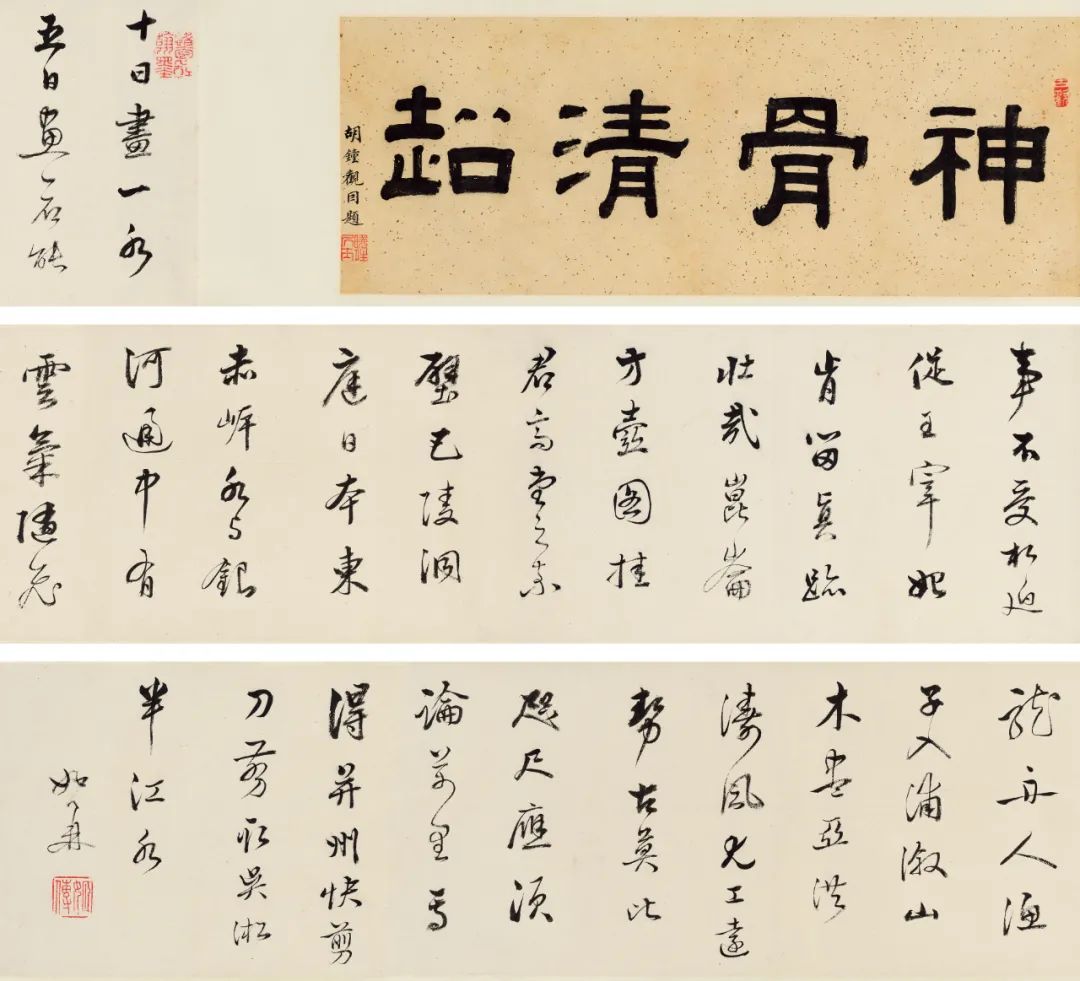 神骨清超
胡鐘觀題
十日畫一水
五日畫一石能
事不受相迫
促王宰始
肯留真跡
壯哉崑崙
方壺圖挂
君高堂之素
壁巴陵洞
庭日本東
赤岸水与銀
河通中有
雲氣隨飛
龍舟人漁
子入浦溆山
木盡亞洪
濤風尤工遠
勢古莫比
咫尺應須
論萬里焉
得并州快剪
刀剪取吳淞
半江水